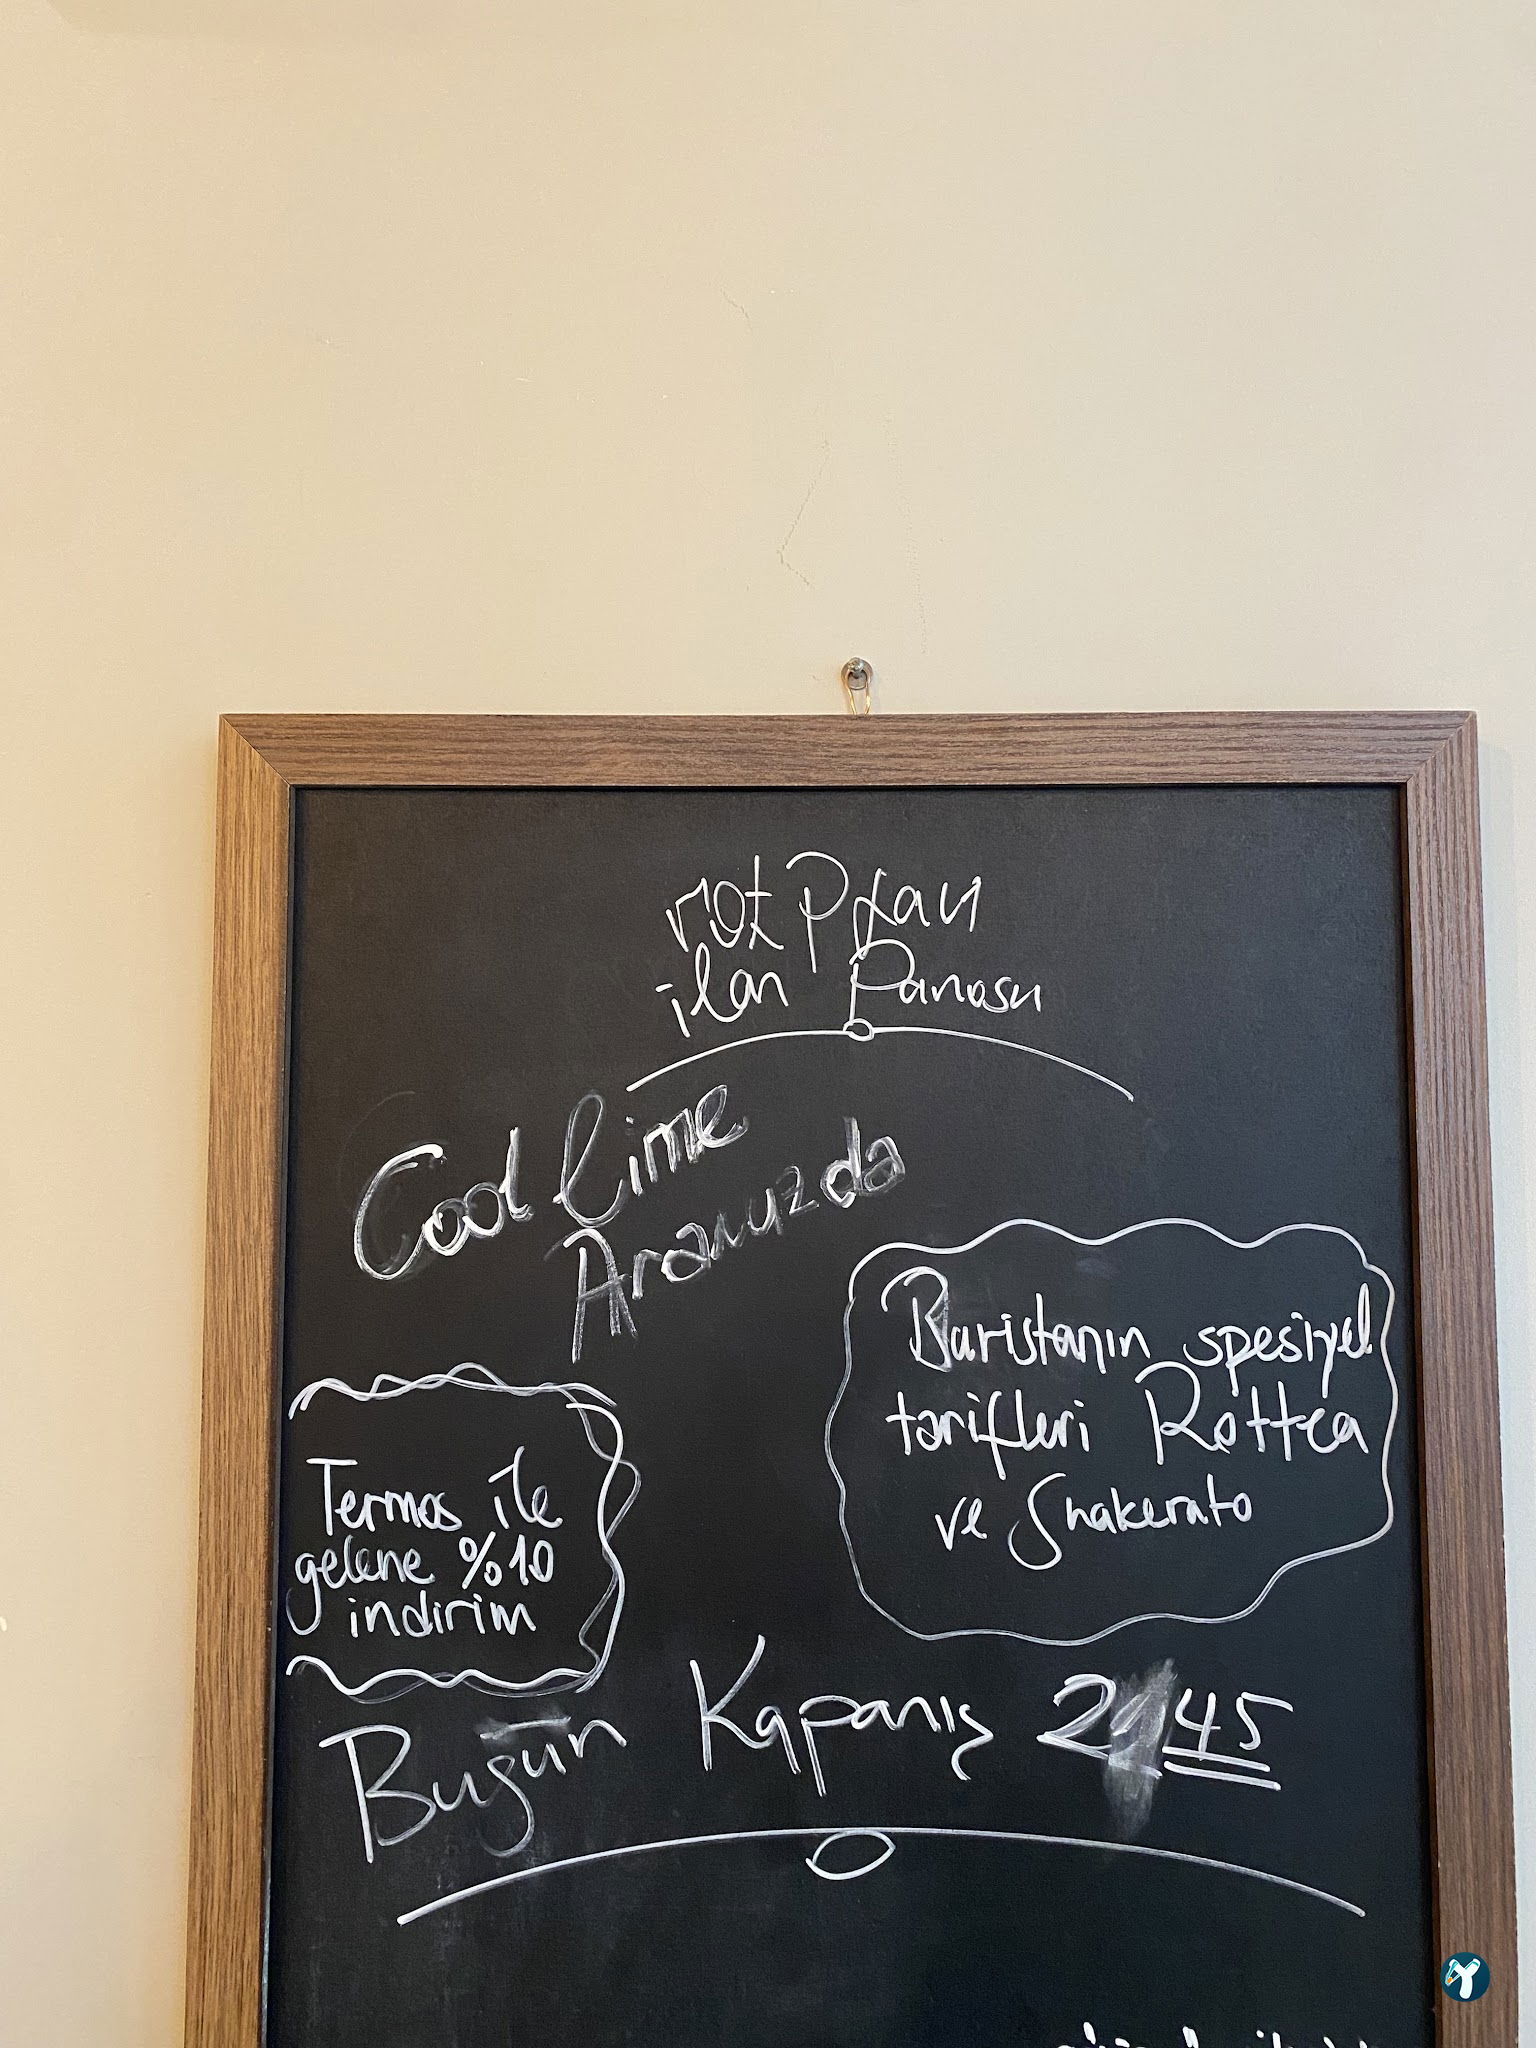 ilan Panosu
Cool lime
Aramızda
Baristanın spesiyel
tarifleri Rottea
ve Shakerato
Termos ile
gelene %10
indirim
Bugün Kapanış 2145